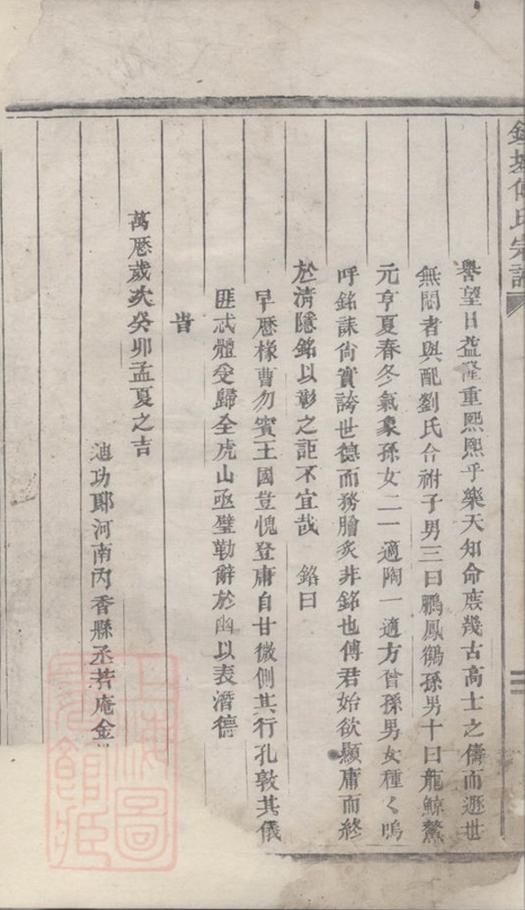 傅氏宗譜
譽望日益隆重熙熙乎樂天知命庶幾古高士之儔而遯世
無悶者與配劉氏合祔子男三曰鵬鳳鶴孫男十曰龍鯨鰲
元亨夏春冬氣象孫女二一適陶一適方曾孫男女種〻嗚
呼銘誄尙實誇世德而務膾炙非銘也傅君始欲顯庸而終
於清隱銘以彰之詎不宜哉 銘曰
早歴椽曹勿賓王國豈愧登庸自甘微側其行孔敦其儀
匪忒體受歸全虎山亟璧勒辭於幽以表潛德
旹
萬歴歲次癸卯孟夏之吉
迪功郎河南內香縣丞若庵金
上海圖
館藏